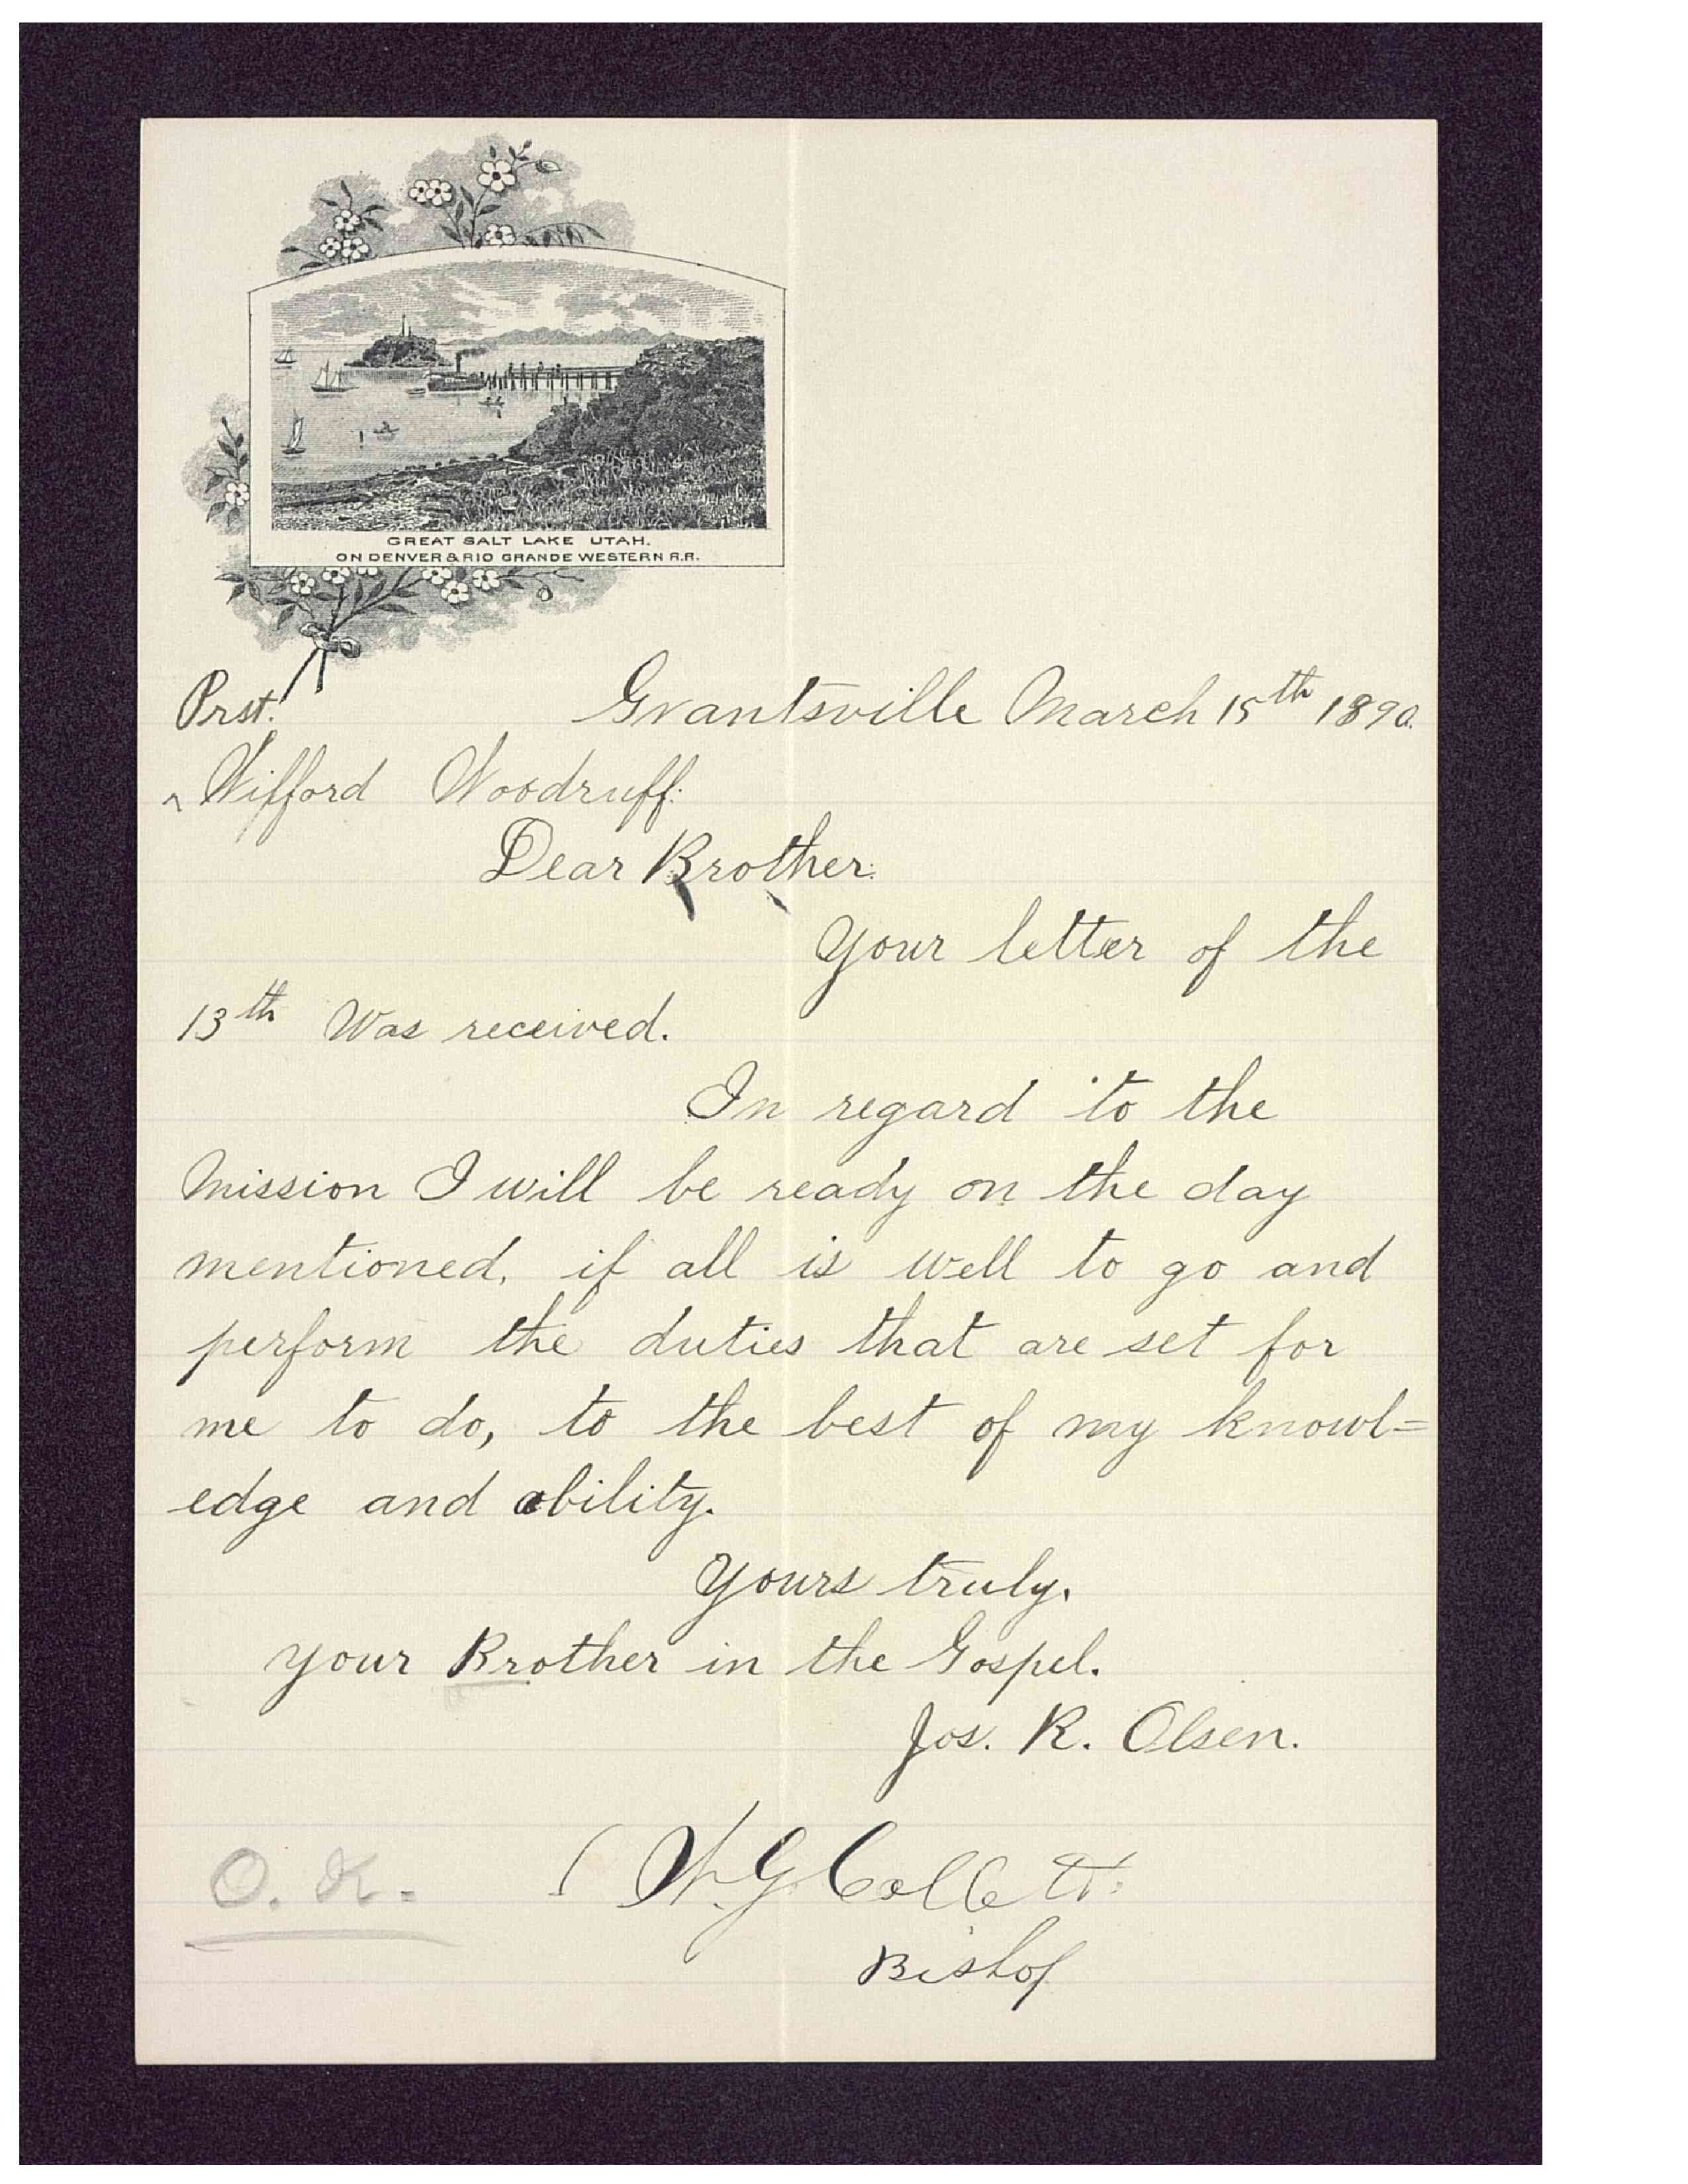 GREAT SALT LAKE UTAH.
ON DENVER & RIO GRANDE WESTERN R.R.
Prst. Grantsville March 15th 1890.
^ Wifford Woodruff:
Dear Brother:
Your letter of the
13th Was received.
In regard to the
mission I will be ready on the day
mentioned, if all is well to go and
perform the duties that are set for
me to do, to the best of my knowl=
edge and ability.
Yours truly.
your Brother in the Gospel.
Jos. R. Olsen.
O. K. ( W G Collett.
Bishop